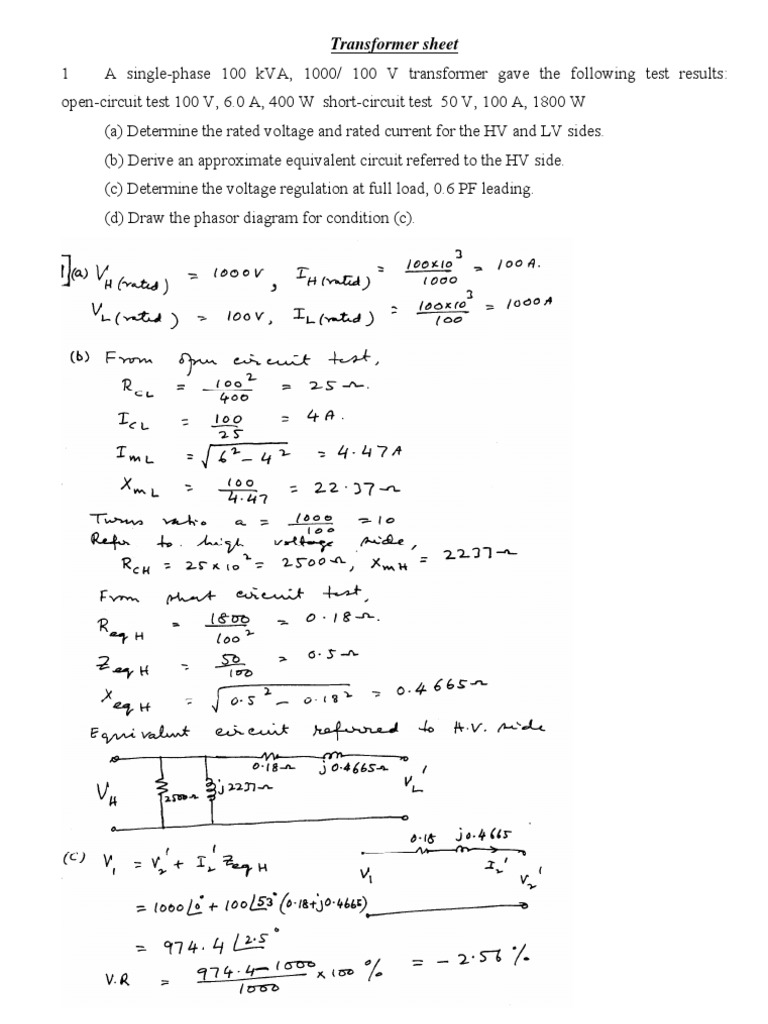 Transformer sheet
1 A single-phase 100 kVA, 1000/ 100 V transformer gave the following test results:
open-circuit test 100 V, 6.0 A, 400 W short-circuit test 50 V, 100 A, 1800 W
(a) Determine the rated voltage and rated current for the HV and LV sides.
(b) Derive an approximate equivalent circuit referred to the HV side.
(c) Determine the voltage regulation at full load, 0.6 PF leading.
(d) Draw the phasor diagram for condition (c).
1](a) V_H(rated) = 1000V, I_H(rated) = 100×10³/1000 = 100A.
V_L(rated) = 100V, I_L(rated) = 100×10³/100 = 1000A
(b) From open circuit test,
R_CL = 100²/400 = 25Ω.
I_CL = 100/25 = 4A.
I_mL = √(6²-4²) = 4.47A
X_mL = 100/4.47 = 22.37Ω
Turns ratio a = 1000/100 = 10
Refer to high voltage side,
R_CH = 25×10² = 2500Ω, X_mH = 2237Ω
From short circuit test,
R_eqH = 1800/100² = 0.18Ω.
Z_eqH = 50/100 = 0.5Ω
X_eqH = √(0.5² - 0.18²) = 0.4665Ω
Equivalent circuit referred to H.V. side
0.18Ω j0.4665Ω
V_H 2500Ω j2237Ω V_L'
(c) V₁ = V₂' + I₂' Z_eqH
0.18 j0.4665
V₁ I₂' V₂'
= 1000∠0° + 100∠53° (0.18+j0.4665)
= 974.4∠2.5°
V.R = 974.4-1000/1000 × 100 % = -2.56 %